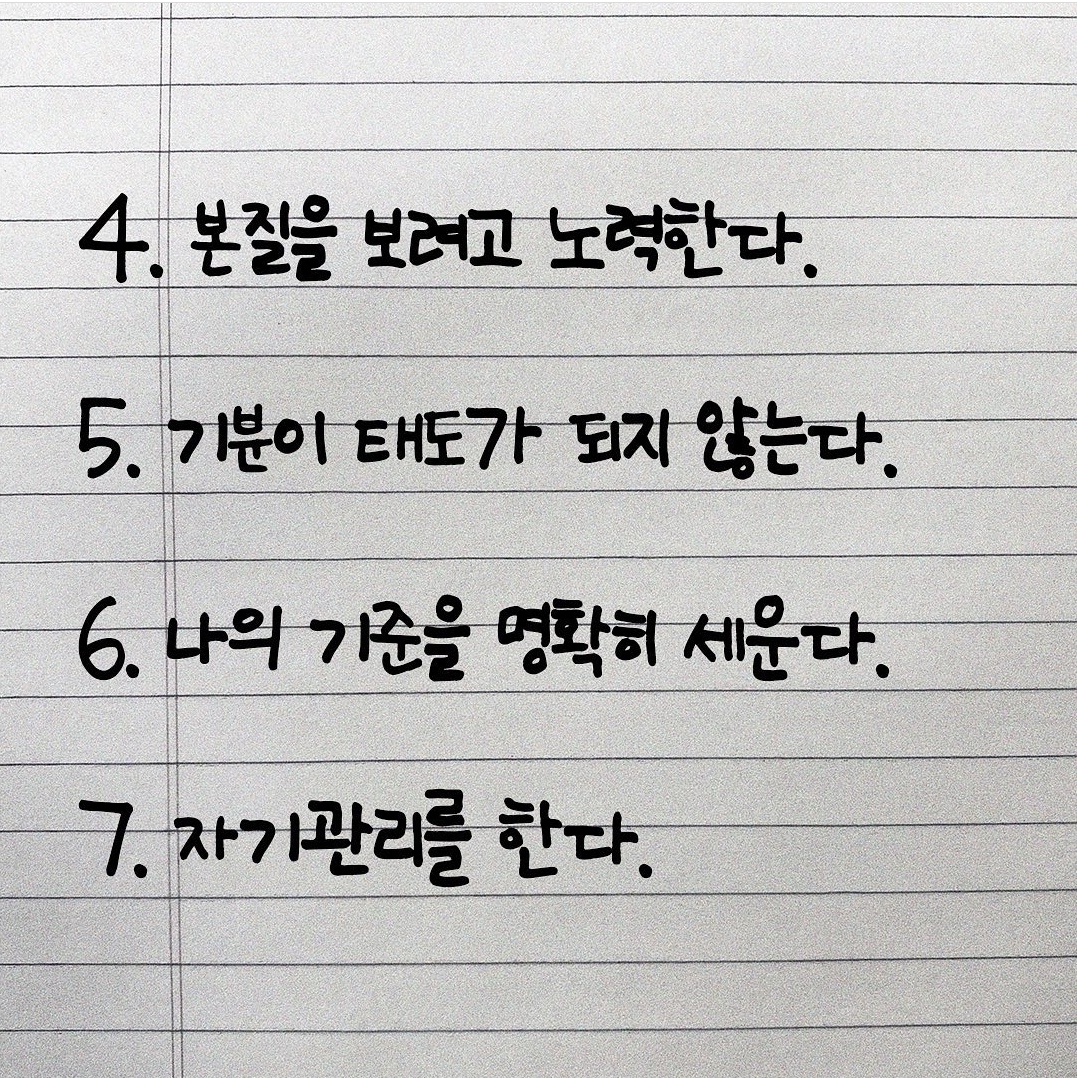 4. 본질을 보려고 노력한다.
5. 기분이 태도가 되지 않는다.
6. 나의 기준을 명확히 세운다.
7. 자기관리를 한다.